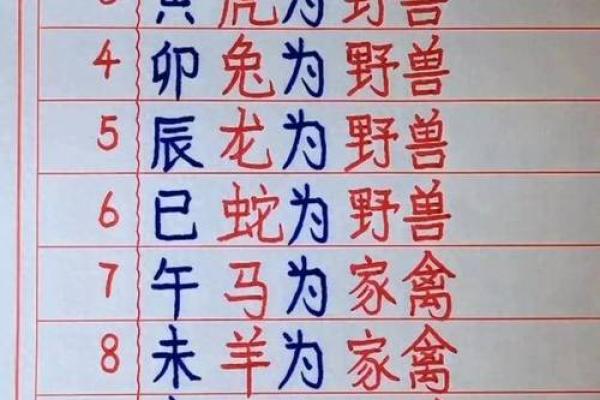 3 寅虎为野兽
4 卯兔为野兽
5 辰龙为野兽
6 巳蛇为野兽
7 午马为家禽
8 未羊为家禽